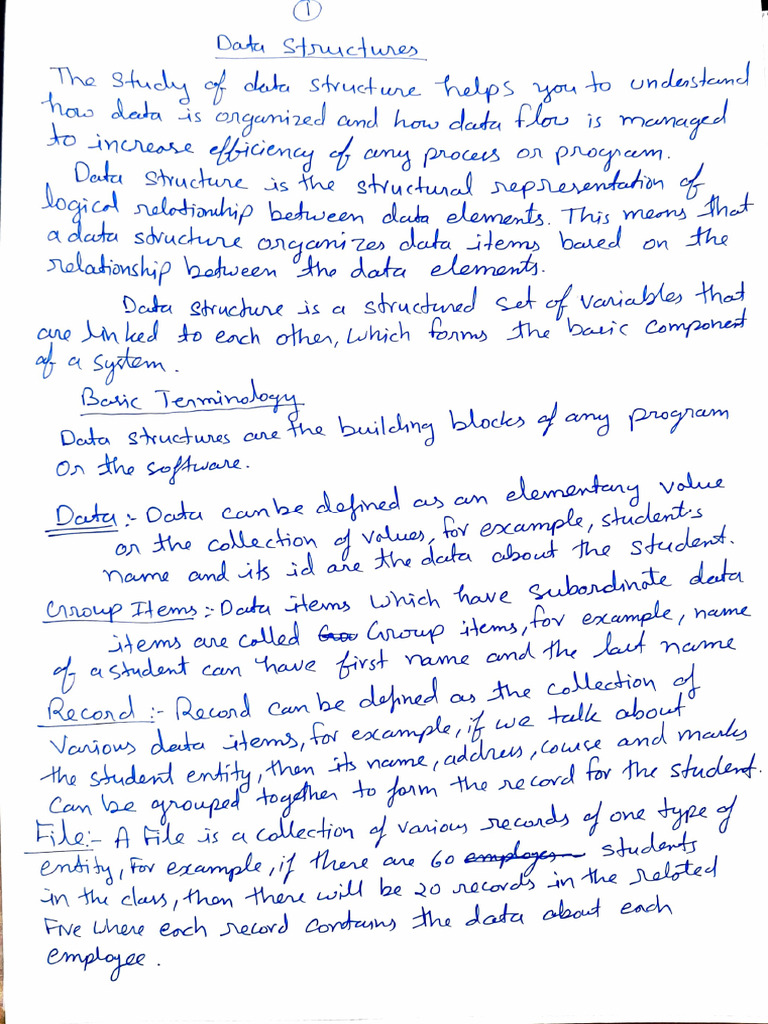 1
Data Structures
The study of data structure helps you to understand
how data is organized and how data flow is managed
to increase efficiency of any process or program.
Data structure is the structural representation of
logical relationship between data elements. This means that
a data structure organizes data items based on the
relationship between the data elements.
Data structure is a structured set of variables that
are linked to each other, which forms the basic component
of a system.
Basic Terminology
Data structures are the building blocks of any program
or the software.
Data :- Data can be defined as an elementary value
or the collection of values, for example, student's
name and its id are the data about the student.
Group Items :- Data items which have subordinate data
items are called Group items, for example, name
of a student can have first name and the last name
Record :- Record can be defined as the collection of
various data items, for example, if we talk about
the student entity, then its name, address, course and marks
can be grouped together to form the record for the student.
File :- A File is a collection of various records of one type of
entity, for example, if there are 60 employes students
in the class, then there will be 20 records in the related
Five where each record contains the data about each
employee.